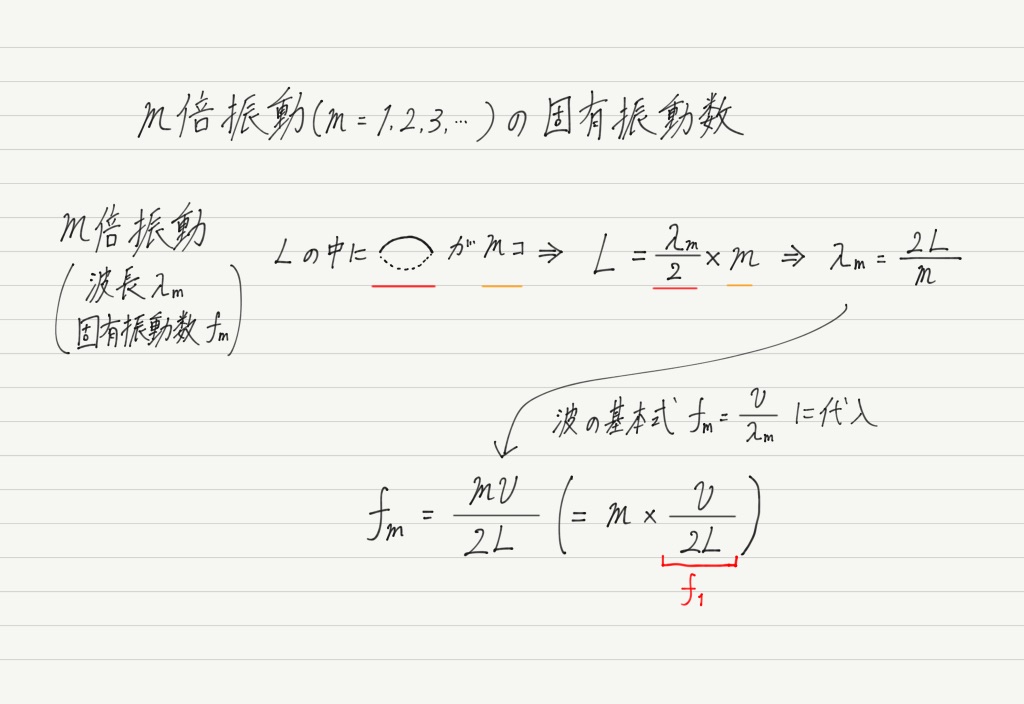 m倍振動(m = 1, 2, 3, …)の固有振動数
m倍振動
(波長 λm
固有振動数 fm)
Lの中に が mコ ⇒ L = λm/2 × m ⇒ λm = 2L/m
波の基本式 fm = v/λm に代入
fm = mv/2L (= m × v/2L)
f1